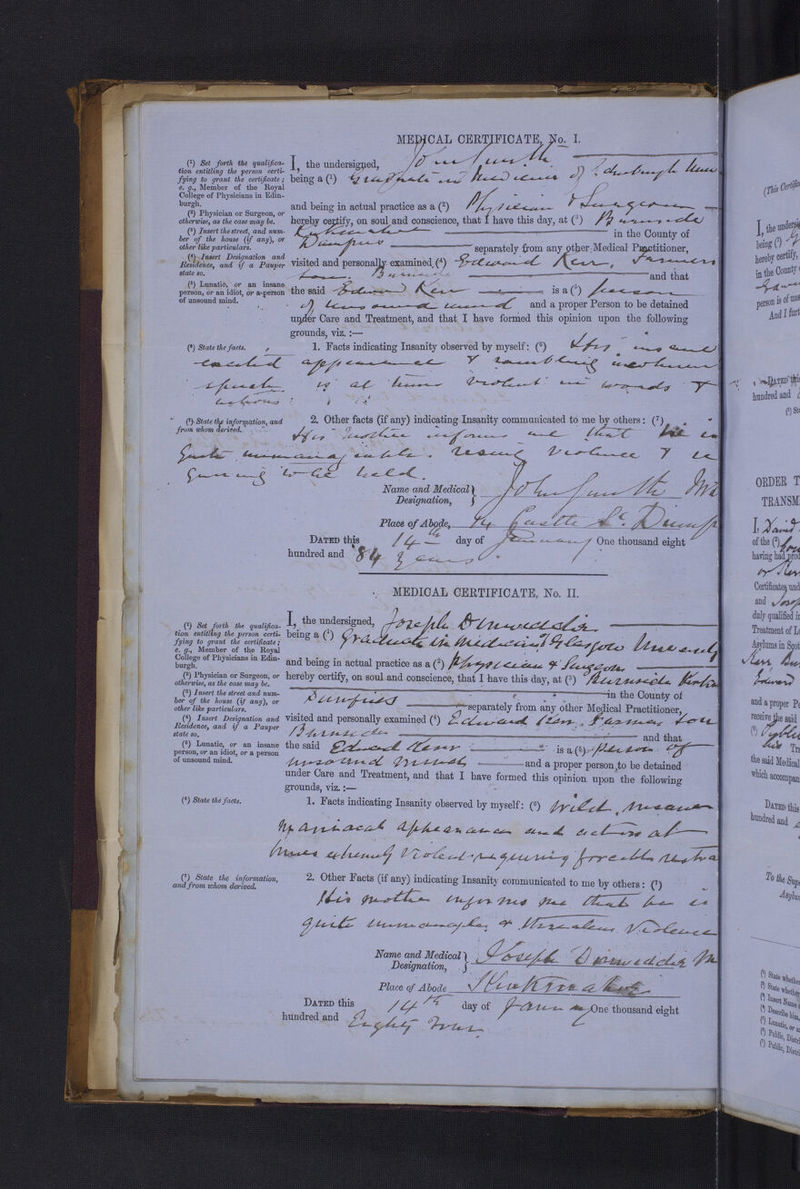 MEDICAL CERTIFICATE, No. I.
(¹) Set forth the qualifica-
tion entitling the person certi-
fying to grant the certificate;
e. g., Member of the Royal
College of Physicians in Edin-
burgh.
(²) Physician or Surgeon, or
otherwise, as the case may be.
(³) Insert the street, and num-
ber of the house (if any), or
other like particulars.
(⁴) Insert Designation and
Residence, and if a Pauper
state so.
(⁵) Lunatic, or an insane
person, or an idiot, or a person
of unsound mind.
I, the undersigned, John Smith
being a (¹) Graduate in Medicine of Edinburgh
and being in actual practice as a (²) Physician & Surgeon
hereby certify, on soul and conscience, that I have this day, at (³) Burnside
Kirkmahoe in the County of
Dumfries separately from any other Medical Practitioner,
visited and personally examined (⁴) Edward Kerr, Farmers
Son, Burnside and that
the said Edward Kerr is a (⁵) person
of unsound mind and a proper Person to be detained
under Care and Treatment, and that I have formed this opinion upon the following
grounds, viz. :—
(⁶) State the facts.
1. Facts indicating Insanity observed by myself: (⁶) His insane
excited appearance & rambling incoherent
speech is at times violent in words &
actions
(⁷) State the information, and
from whom derived.
2. Other facts (if any) indicating Insanity communicated to me by others: (⁷)
His mother informs me that he is
quite unmanageable. using violence &
to be held.
Name and Medical Designation, John Smith
Place of Abode, 14 Castle St. Dumf
DATED this 14th day of January One thousand eight
hundred and 84 years
MEDICAL CERTIFICATE, No. II.
(¹) Set forth the qualifica-
tion entitling the person certi-
fying to grant the certificate;
e. g., Member of the Royal
College of Physicians in Edin-
burgh.
(²) Physician or Surgeon, or
otherwise, as the case may be.
(³) Insert the street and num-
ber of the house (if any), or
other like particulars.
(⁴) Insert Designation and
Residence, and if a Pauper
state so.
(⁵) Lunatic, or an insane
person, or an idiot, or a person
of unsound mind.
I, the undersigned, Joseph Dinwiddie
being a (¹) Graduate in Medicine Glasgow University
and being in actual practice as a (²) Physician & Surgeon
hereby certify, on soul and conscience, that I have this day, at (³) Burnside
Dumfries in the County of
separately from any other Medical Practitioner,
visited and personally examined (⁴) Edward Kerr, Farmers Son
Burnside and that
the said Edward Kerr is a (⁵) person of
unsound mind and a proper person to be detained
under Care and Treatment, and that I have formed this opinion upon the following
grounds, viz. :—
(⁶) State the facts.
1. Facts indicating Insanity observed by myself: (⁶) Wild,
maniacal appearance and actions at
times extremely violent requiring forcible restra
(⁷) State the information,
and from whom derived.
2. Other Facts (if any) indicating Insanity communicated to me by others: (⁷)
His mother informs me that he is
quite & threatens violence
Name and Medical Designation, Joseph Dinwiddie M
Place of Abode Kirkmahoe
DATED this 14th day of January One thousand eight
hundred and Eighty Four
(This Certific
I, the undersi
being (¹)
hereby certify,
in the County
person is of uns
And I furt
DATED this
hundred and
ORDER T
TRANSM
I, David
of the (²)
having had prod
Certificates und
and
duly qualified i
Treatment of L
Asylums in Scot
Edward
and a proper Pe
receive the said
the said Medical
which accompan
DATED this
hundred and
To the Supe
Asylum
(¹) State whether
(²) State whether
(³) Insert Name
(⁴) Describe him
(⁵) Lunatic, or a
(⁶) Public, Distri
(⁷) Public, Distri